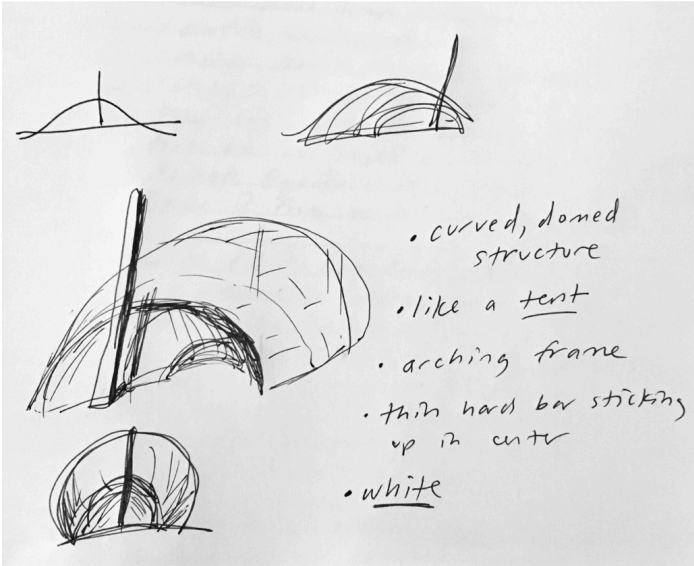 • curved, domed
structure
• like a tent
• arching frame
• thin hard bar sticking
up in center
• white